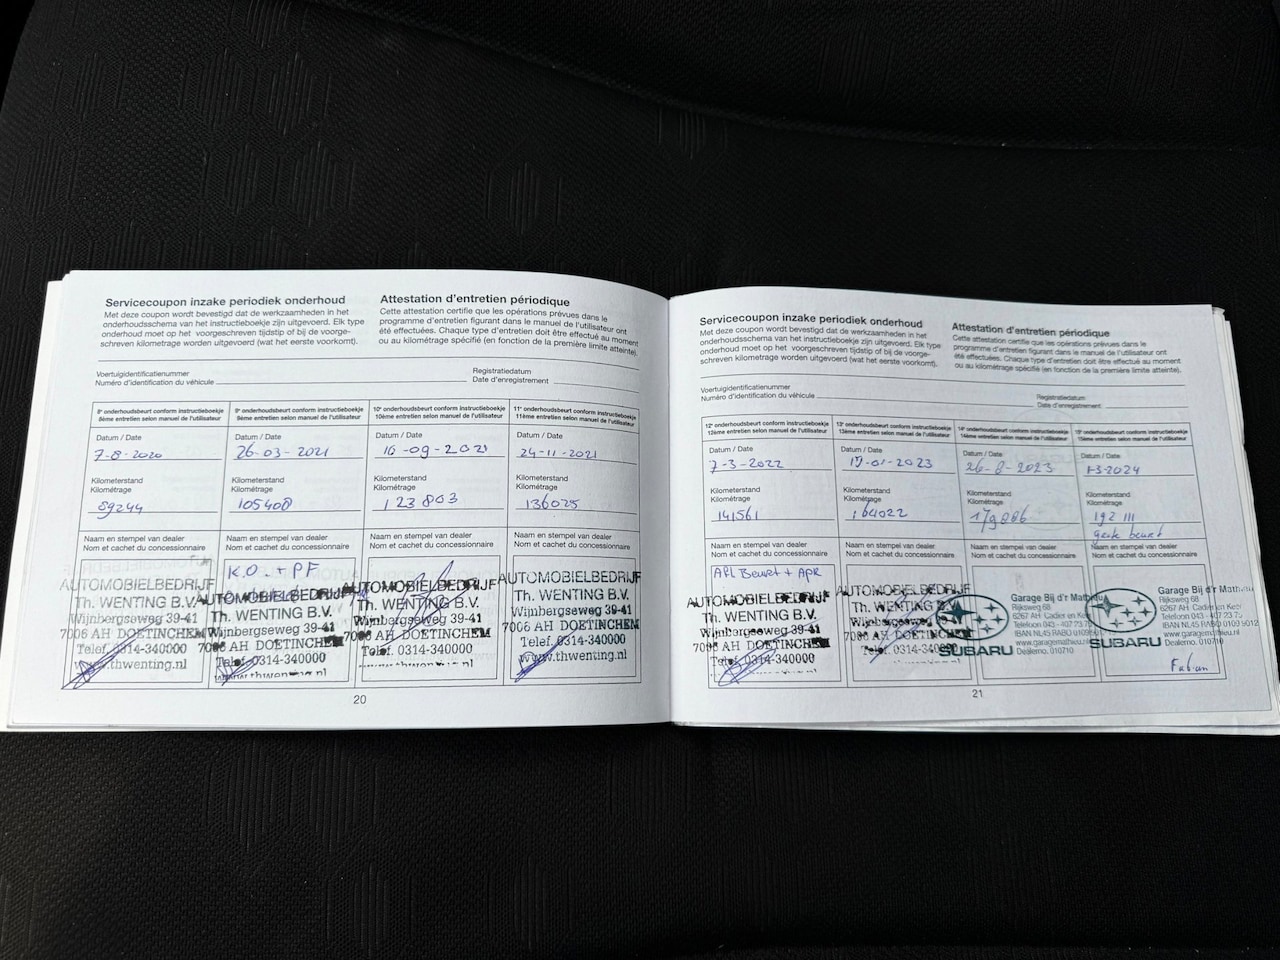 Servicecoupon inzake periodiek onderhoud
Met deze coupon wordt bevestigd dat de werkzaamheden in het
onderhoudsschema van het instructieboekje zijn uitgevoerd. Elk type
onderhoud moet op het voorgeschreven tijdstip of bij de voorge-
schreven kilometrage worden uitgevoerd (wat het eerste voorkomt).
Attestation d'entretien périodique
Cette attestation certifie que les opérations prévues dans le
programme d'entretien figurant dans le manuel de l'utilisateur ont
été effectuées. Chaque type d'entretien doit être effectué au moment
ou au kilométrage spécifié (en fonction de la première limite atteinte).
Voertuigidentificatienummer
Numéro d'identification du véhicule
Registratiedatum
Date d'enregistrement
8e onderhoudsbeurt conform instructieboekje
8ème entretien selon manuel de l'utilisateur
Datum / Date
7-8-2020
Kilometerstand
Kilométrage
89244
Naam en stempel van dealer
Nom et cachet du concessionnaire
AUTOMOBIELBEDRIJF
Th. WENTING B.V.
Wijnbergseweg 39-41
7006 AH DOETINCHEM
Telef. 0314-340000
www.thwenting.nl
9e onderhoudsbeurt conform instructieboekje
9ème entretien selon manuel de l'utilisateur
Datum / Date
26-03-2021
Kilometerstand
Kilométrage
105408
Naam en stempel van dealer
Nom et cachet du concessionnaire
K.O. + PF
AUTOMOBIELBEDRIJF
Th. WENTING B.V.
Wijnbergseweg 39-41
7006 AH DOETINCHEM
Telef. 0314-340000
www.thwenting.nl
10e onderhoudsbeurt conform instructieboekje
10ème entretien selon manuel de l'utilisateur
Datum / Date
10-09-2021
Kilometerstand
Kilométrage
123803
Naam en stempel van dealer
Nom et cachet du concessionnaire
AUTOMOBIELBEDRIJF
Th. WENTING B.V.
Wijnbergseweg 39-41
7006 AH DOETINCHEM
Telef. 0314-340000
11e onderhoudsbeurt conform instructieboekje
11ème entretien selon manuel de l'utilisateur
Datum / Date
24-11-2021
Kilometerstand
Kilométrage
136025
Naam en stempel van dealer
Nom et cachet du concessionnaire
AUTOMOBIELBEDRIJF
Th. WENTING B.V.
Wijnbergseweg 39-41
7006 AH DOETINCHEM
Telef. 0314-340000
www.thwenting.nl
20
Servicecoupon inzake periodiek onderhoud
Met deze coupon wordt bevestigd dat de werkzaamheden in het
onderhoudsschema van het instructieboekje zijn uitgevoerd. Elk type
onderhoud moet op het voorgeschreven tijdstip of bij de voorge-
schreven kilometrage worden uitgevoerd (wat het eerste voorkomt).
Attestation d'entretien périodique
Cette attestation certifie que les opérations prévues dans le
programme d'entretien figurant dans le manuel de l'utilisateur ont
été effectuées. Chaque type d'entretien doit être effectué au moment
ou au kilométrage spécifié (en fonction de la première limite atteinte).
Voertuigidentificatienummer
Numéro d'identification du véhicule
Registratiedatum
Date d'enregistrement
12e onderhoudsbeurt conform instructieboekje
12ème entretien selon manuel de l'utilisateur
Datum / Date
7-3-2022
Kilometerstand
Kilométrage
141561
Naam en stempel van dealer
Nom et cachet du concessionnaire
Beurt + APK
AUTOMOBIELBEDRIJF
Th. WENTING B.V.
Wijnbergseweg 39-41
7006 AH DOETINCHEM
Telef. 0314-340000
www.thwenting.nl
13e onderhoudsbeurt conform instructieboekje
13ème entretien selon manuel de l'utilisateur
Datum / Date
2023
Kilometerstand
Kilométrage
164022
Naam en stempel van dealer
Nom et cachet du concessionnaire
AUTOMOBIELBEDRIJF
Th. WENTING B.V.
Wijnbergseweg 39-41
7006 AH DOETINCHEM
Telef. 0314-340000
14e onderhoudsbeurt conform instructieboekje
14ème entretien selon manuel de l'utilisateur
Datum / Date
26-8-2023
Kilometerstand
Kilométrage
Naam en stempel van dealer
Nom et cachet du concessionnaire
SUBARU
Garage Bij d'r Mathieu
Rijksweg 68
6267 AH Cadier en Keer
Telefoon 043 - 407 23 75
IBAN NL45 RABO
www.garagemathieu.nl
Dealerno. 010710
15e onderhoudsbeurt conform instructieboekje
15ème entretien selon manuel de l'utilisateur
Datum / Date
1-3-2024
Kilometerstand
Kilométrage
192 111
grote beurt
Naam en stempel van dealer
Nom et cachet du concessionnaire
SUBARU
Garage Bij d'r Mathieu
Rijksweg 68
6267 AH Cadier en Keer
Telefoon 043 - 407 23 75
IBAN NL45 RABO
www.garagemathieu.nl
Dealerno. 010710
Fabian
21